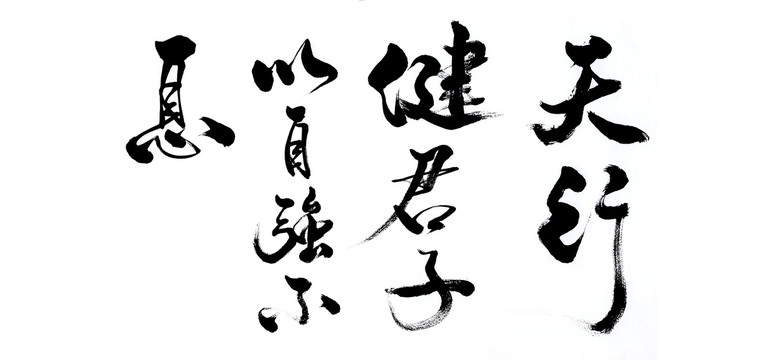 天行
健君子
以自強不
息